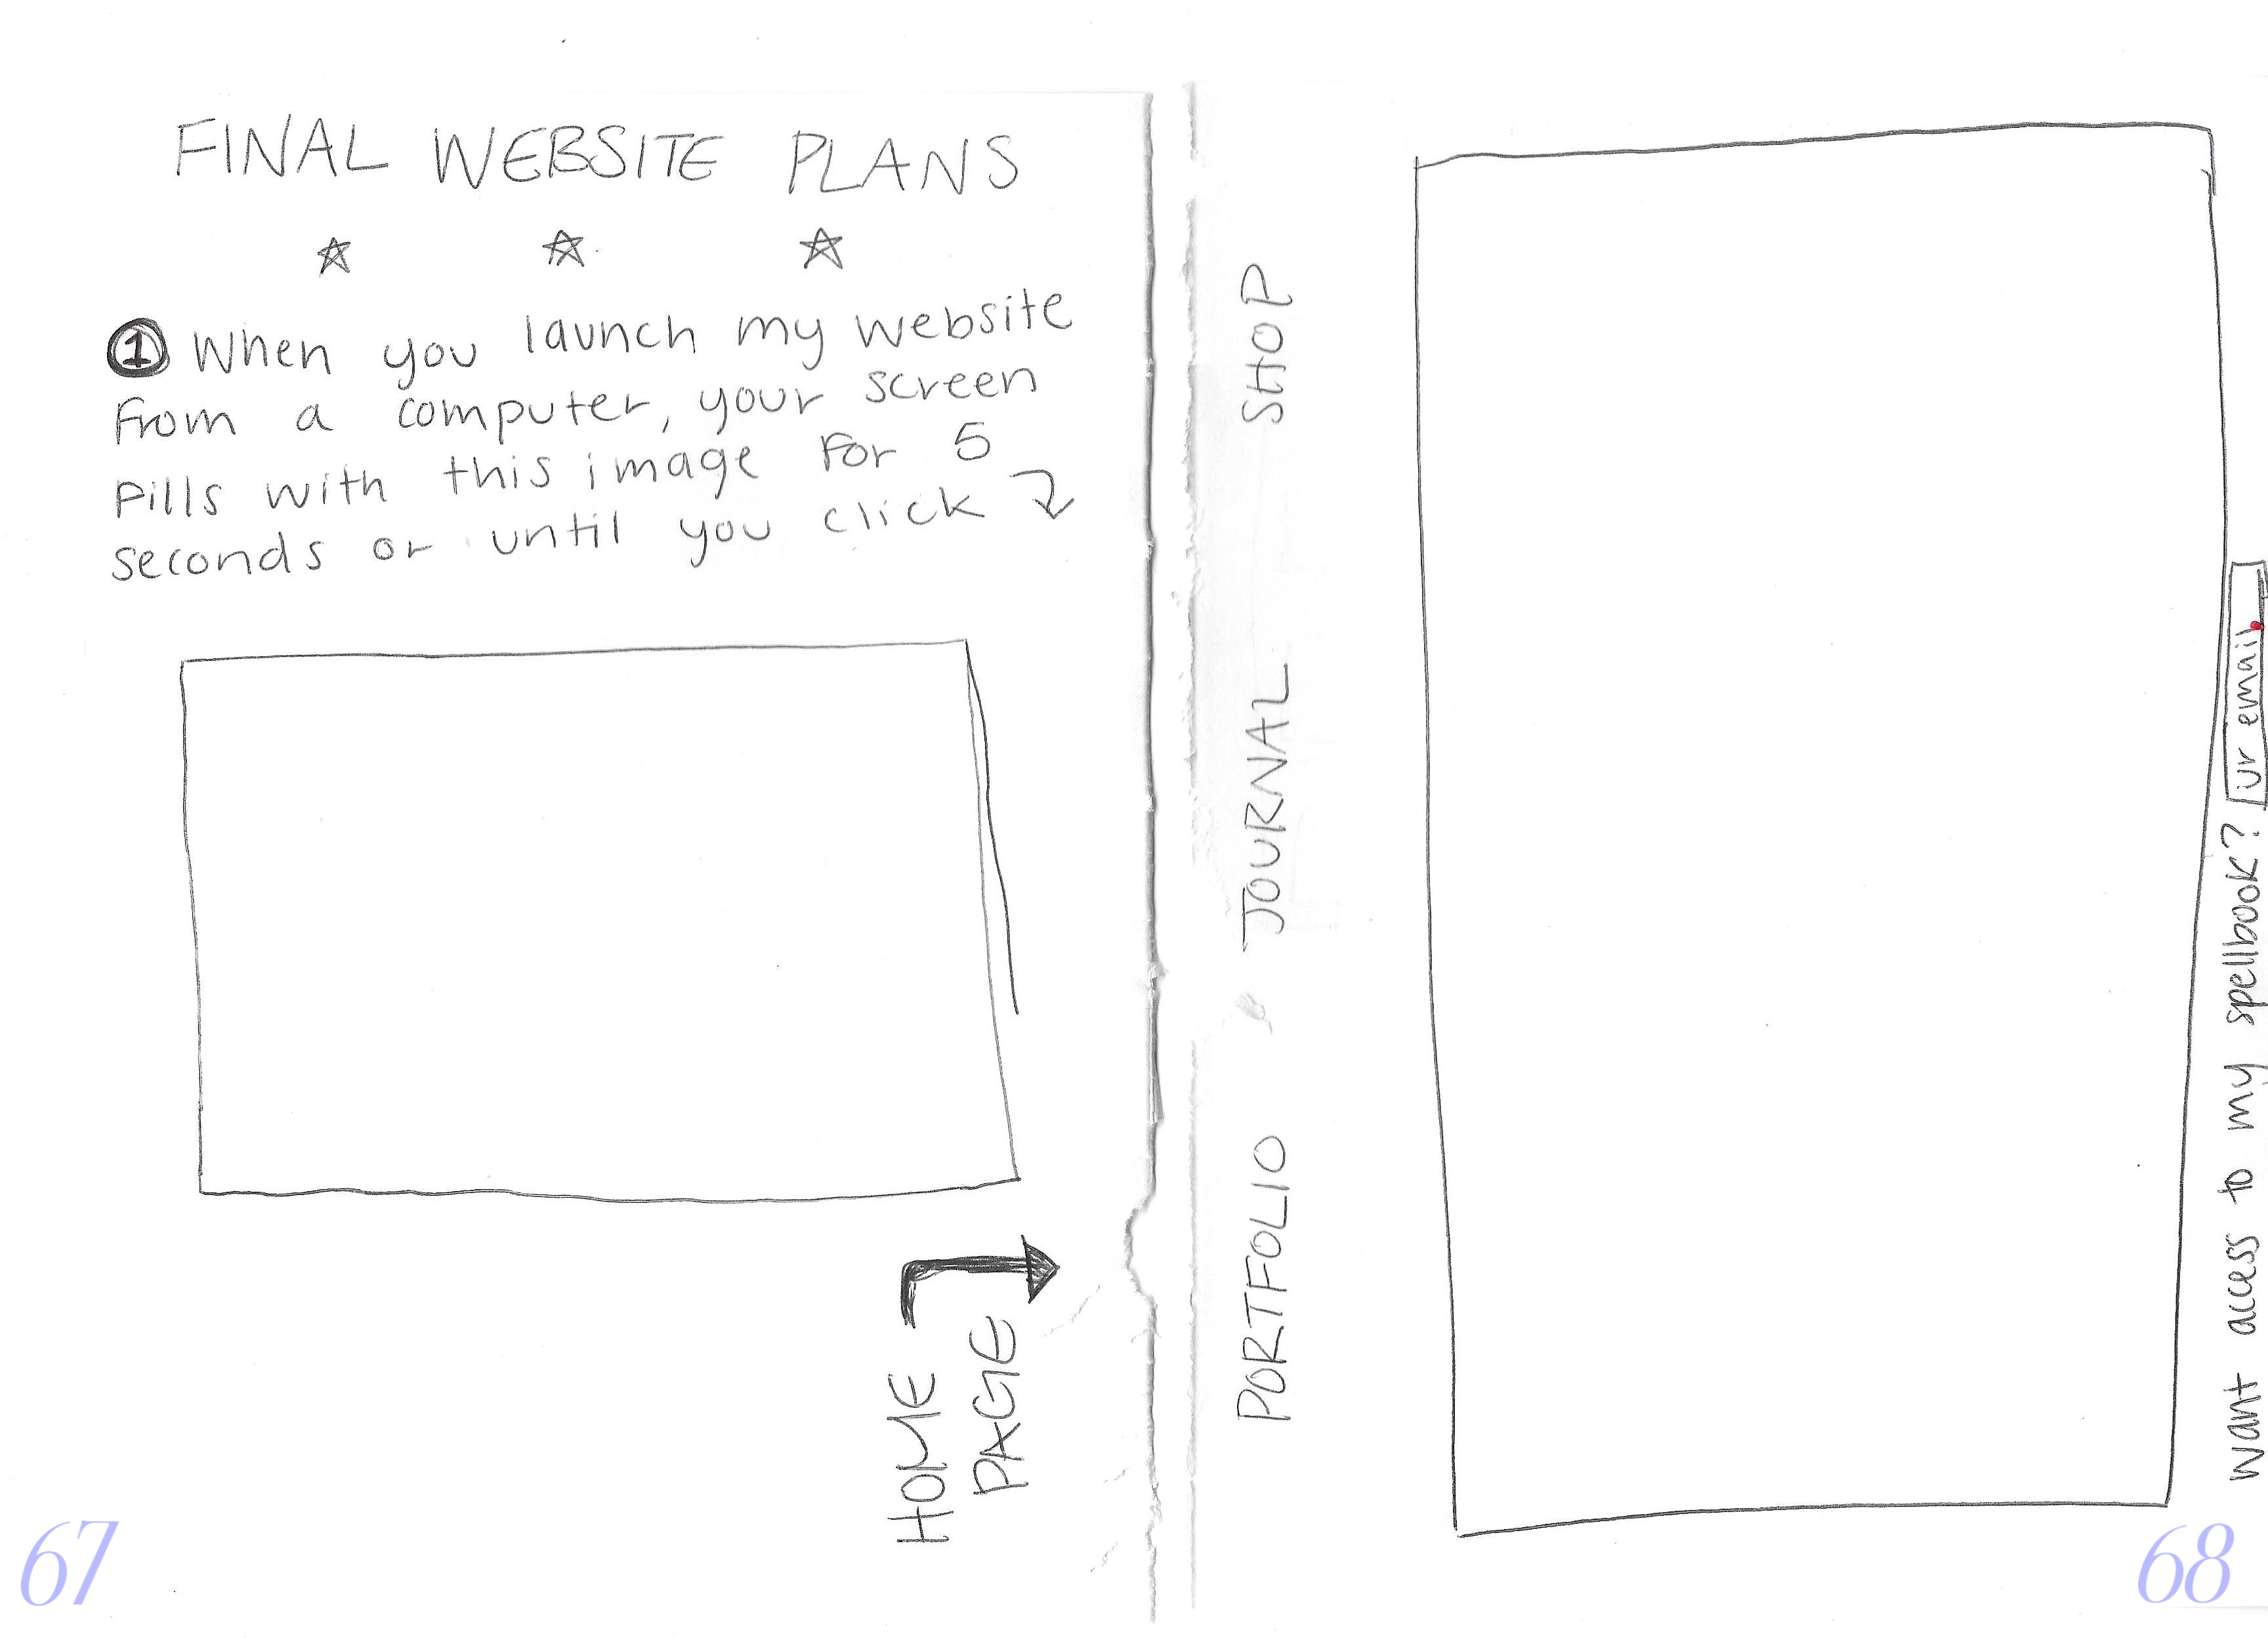 FINAL WEBSITE PLANS
1 When you launch my website
from a computer, your screen
fills with this image for 5
seconds or until you click
HOME
PAGE
67
PORTFOLIO JOURNAL SHOP
want access to my spellbook? ur email
68